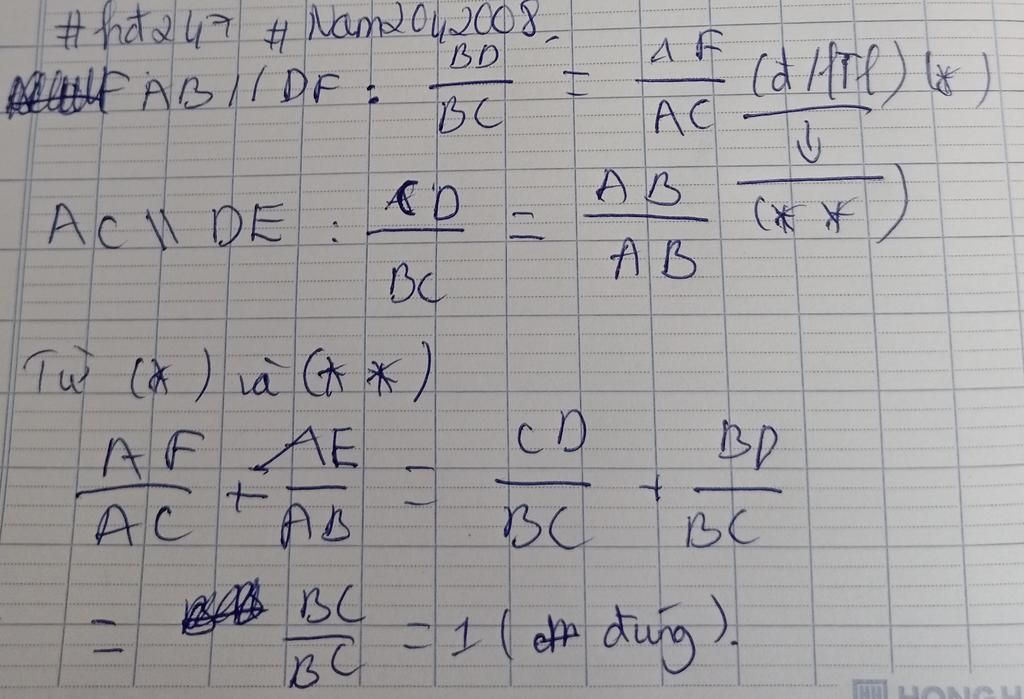 #hđ247 #Nam2042008.
AB // DF : BD/BC = AF/AC (đ/lTl) (*)
AC \\ DE : CD/BC = AB/AB (**)
Từ (*) và (**)
AF/AC + AE/AB = CD/BC + BD/BC
= BC/BC = 1 (đúng).
HONG H